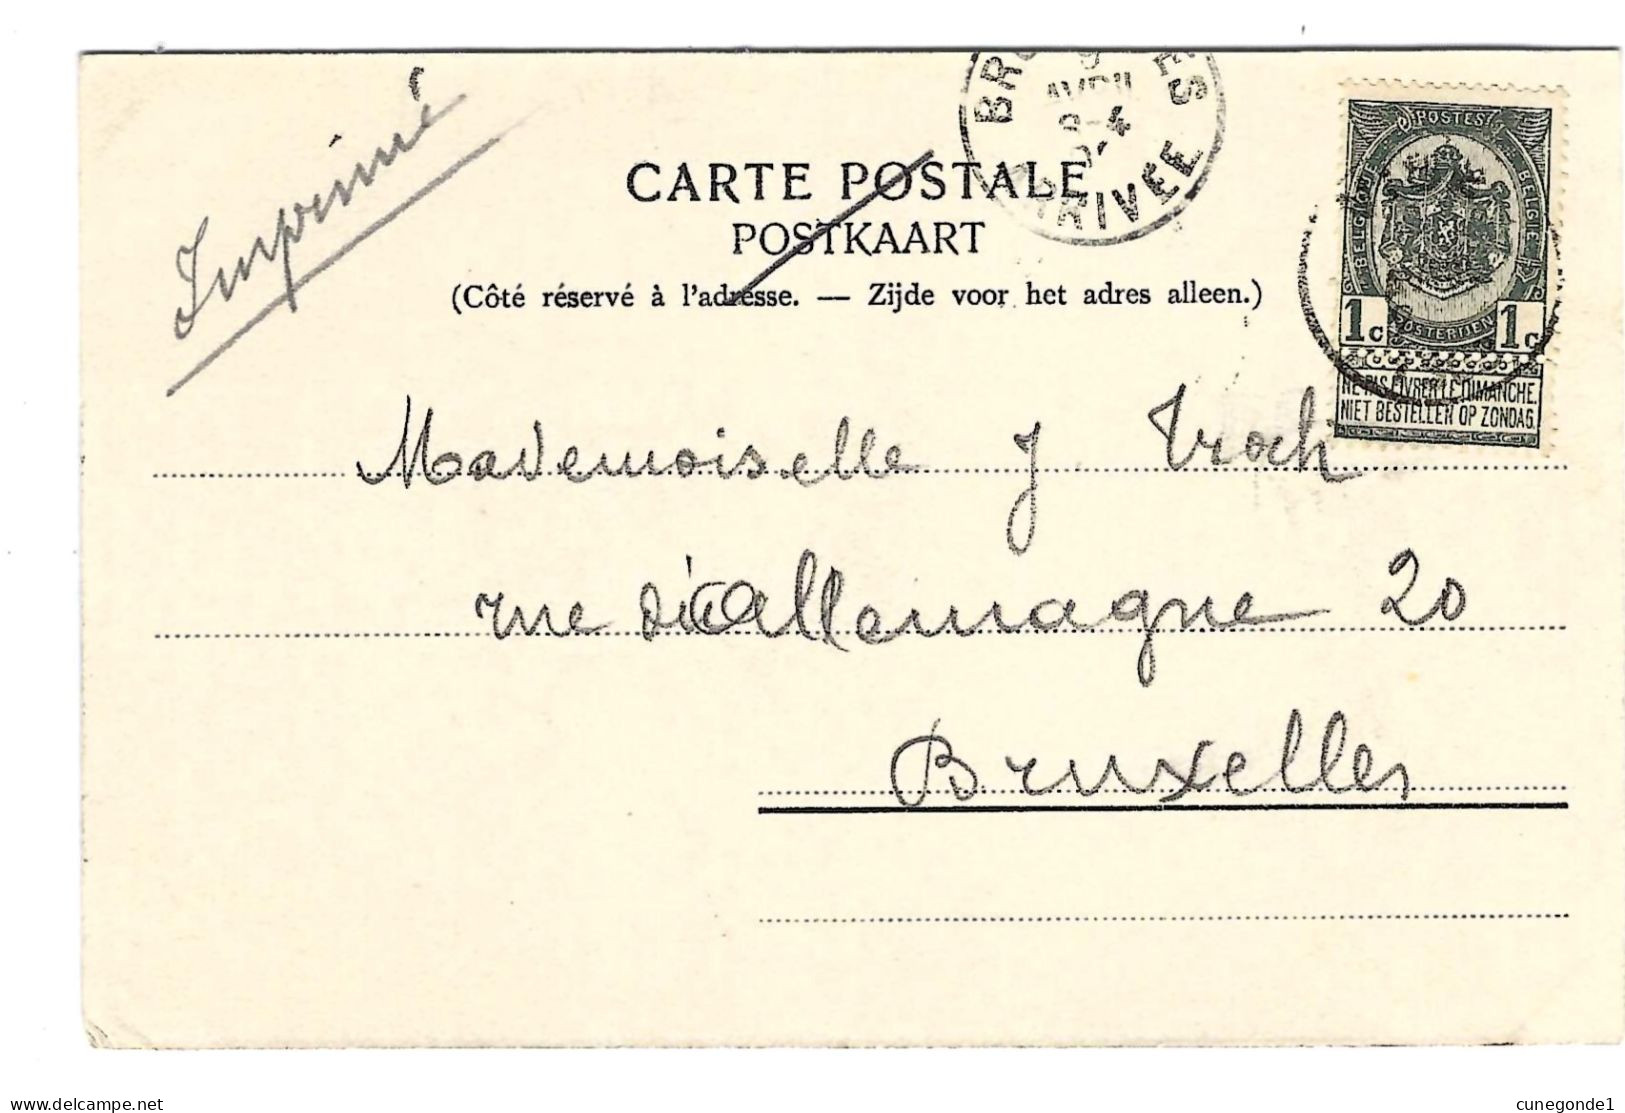 Imprimé
CARTE POSTALE
POSTKAART
(Côté réservé à l'adresse. — Zijde voor het adres alleen.)
AVRIL
ARRIVEE
POSTES
BELGIQUE
BELGIE
POSTERIJEN
1c 1c
NE PAS LIVRER LE DIMANCHE.
NIET BESTELLEN OP ZONDAG.
Mademoiselle J Troch
rue d'Allemagne 20
Bruxelles
www.delcampe.net
cunegonde1